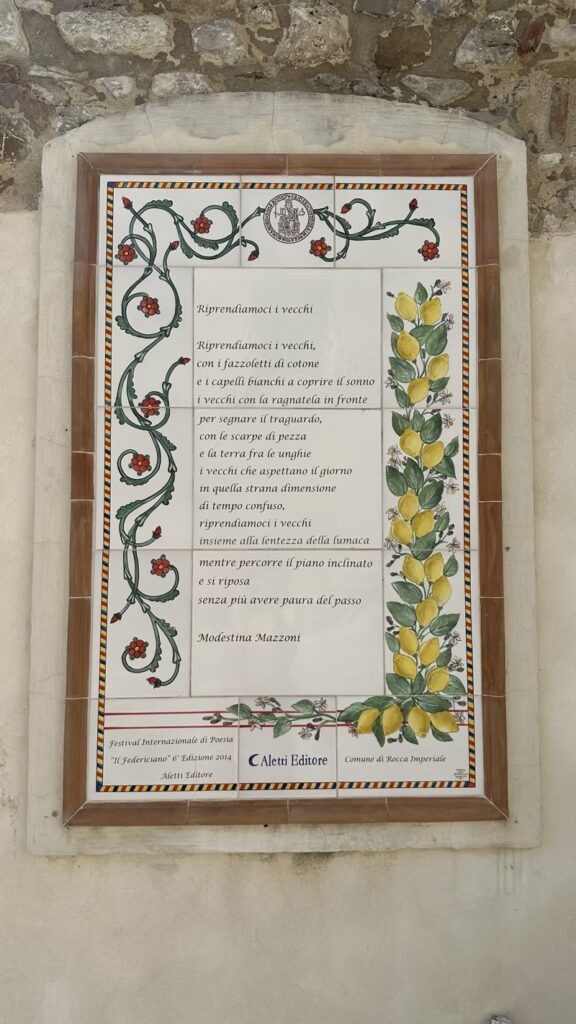 Riprendiamoci i vecchi
Riprendiamoci i vecchi,
con i fazzoletti di cotone
e i capelli bianchi a coprire il sonno
i vecchi con la ragnatela in fronte
per segnare il traguardo,
con le scarpe di pezza
e la terra fra le unghie
i vecchi che aspettano il giorno
in quella strana dimensione
di tempo confuso,
riprendiamoci i vecchi
insieme alla lentezza della lumaca
mentre percorre il piano inclinato
e si riposa
senza più avere paura del passo
Modestina Mazzoni
Festival Internazionale di Poesia
"Il Federiciano" 6° Edizione 2014
Aletti Editore
Aletti Editore
Comune di Rocca Imperiale